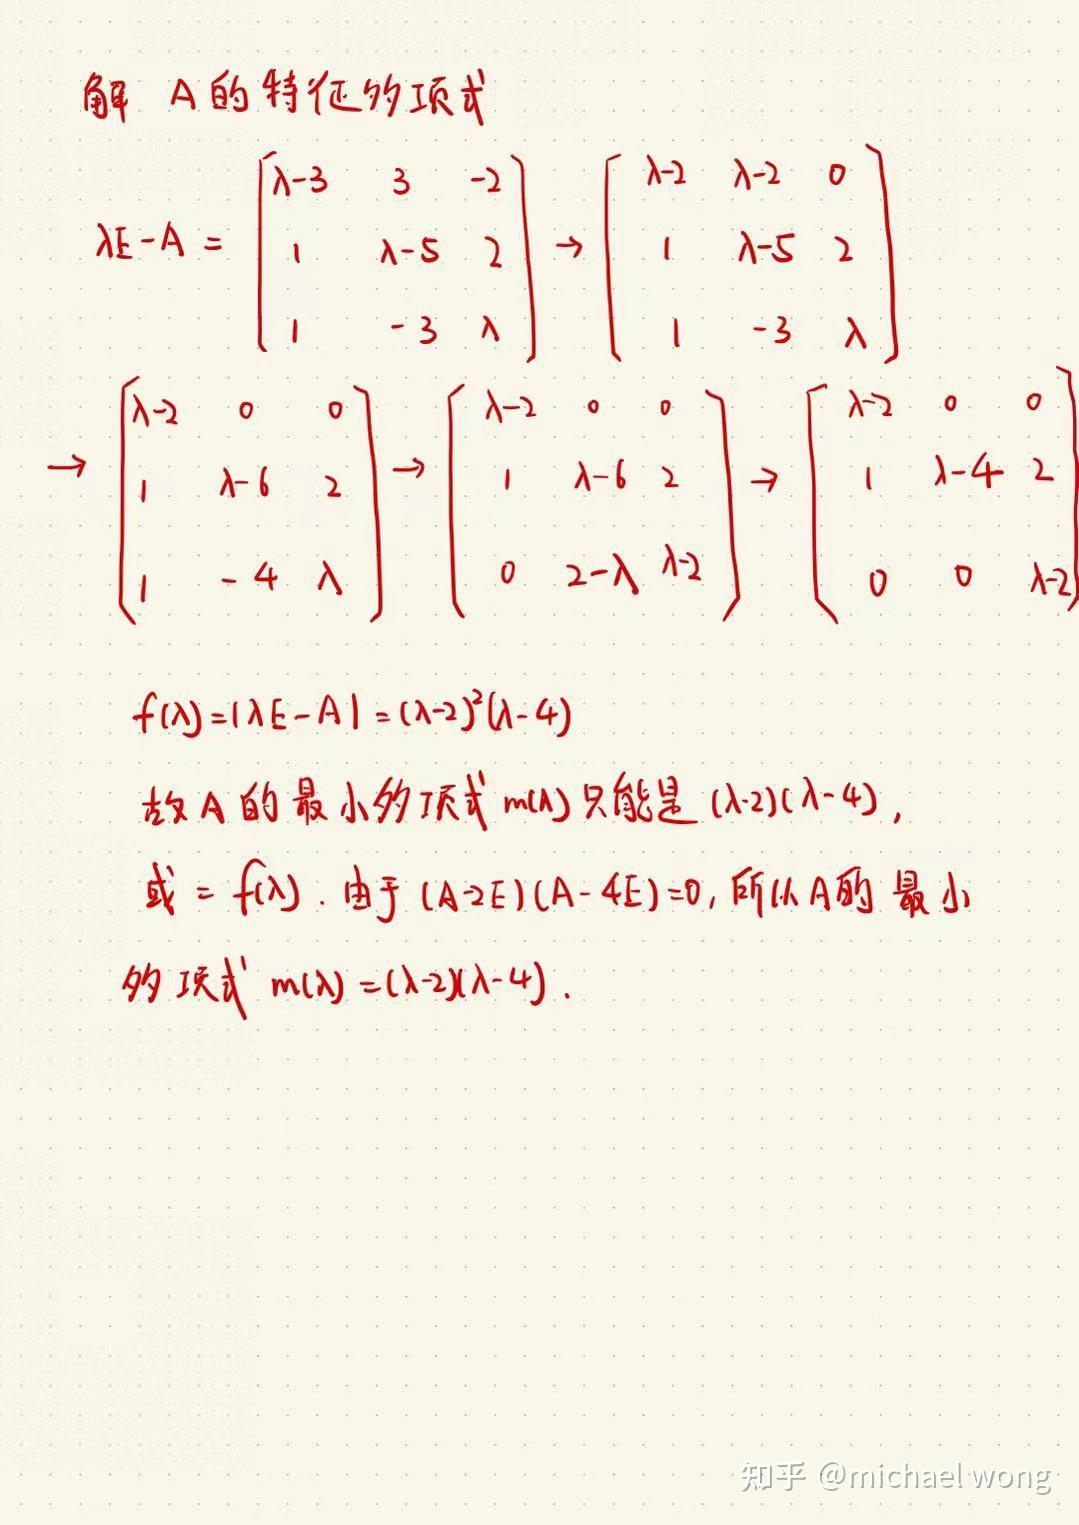 解 A的特征多项式
λE-A = [λ-3 3 -2; 1 λ-5 2; 1 -3 λ] → [λ-2 λ-2 0; 1 λ-5 2; 1 -3 λ]
→ [λ-2 0 0; 1 λ-6 2; 1 -4 λ] → [λ-2 0 0; 1 λ-6 2; 0 2-λ λ-2] → [λ-2 0 0; 1 λ-4 2; 0 0 λ-2]
f(λ)=|λE-A|=(λ-2)²(λ-4)
故A的最小多项式m(λ)只能是(λ-2)(λ-4),
或=f(λ).由于(A-2E)(A-4E)=0,所以A的最小
多项式m(λ)=(λ-2)(λ-4).
知乎 @michael wong